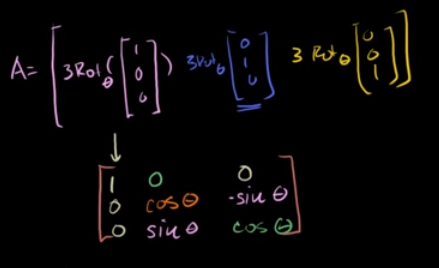 A = [ 3Rotθ([1 0 0]) 3Rotθ[0 1 0] 3Rotθ[0 0 1] ]
1 0 0
0 cosθ -sinθ
0 sinθ cosθ